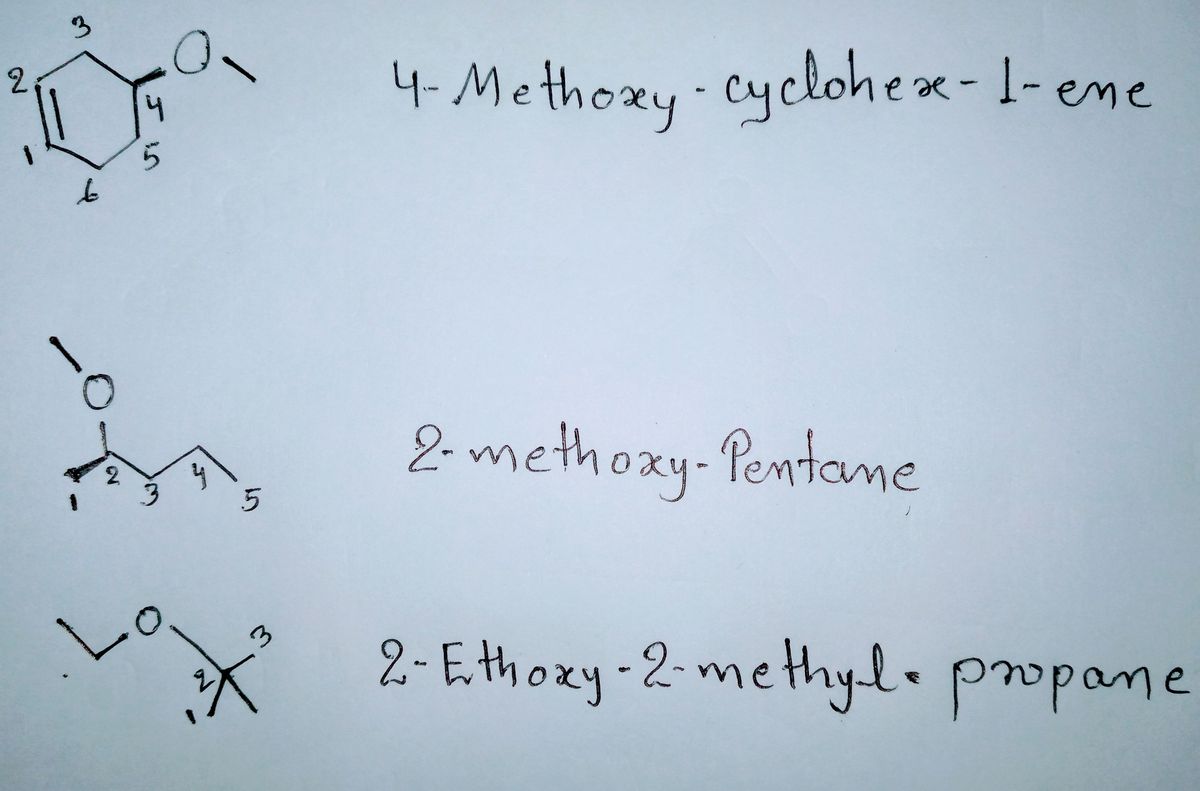 3
2
O
4
1
5
6
4-Methoxy-cyclohex-1-ene
O
2
4
1
3
5
2-methoxy-Pentane
O
3
2
1
2-Ethoxy-2-methyl-propane